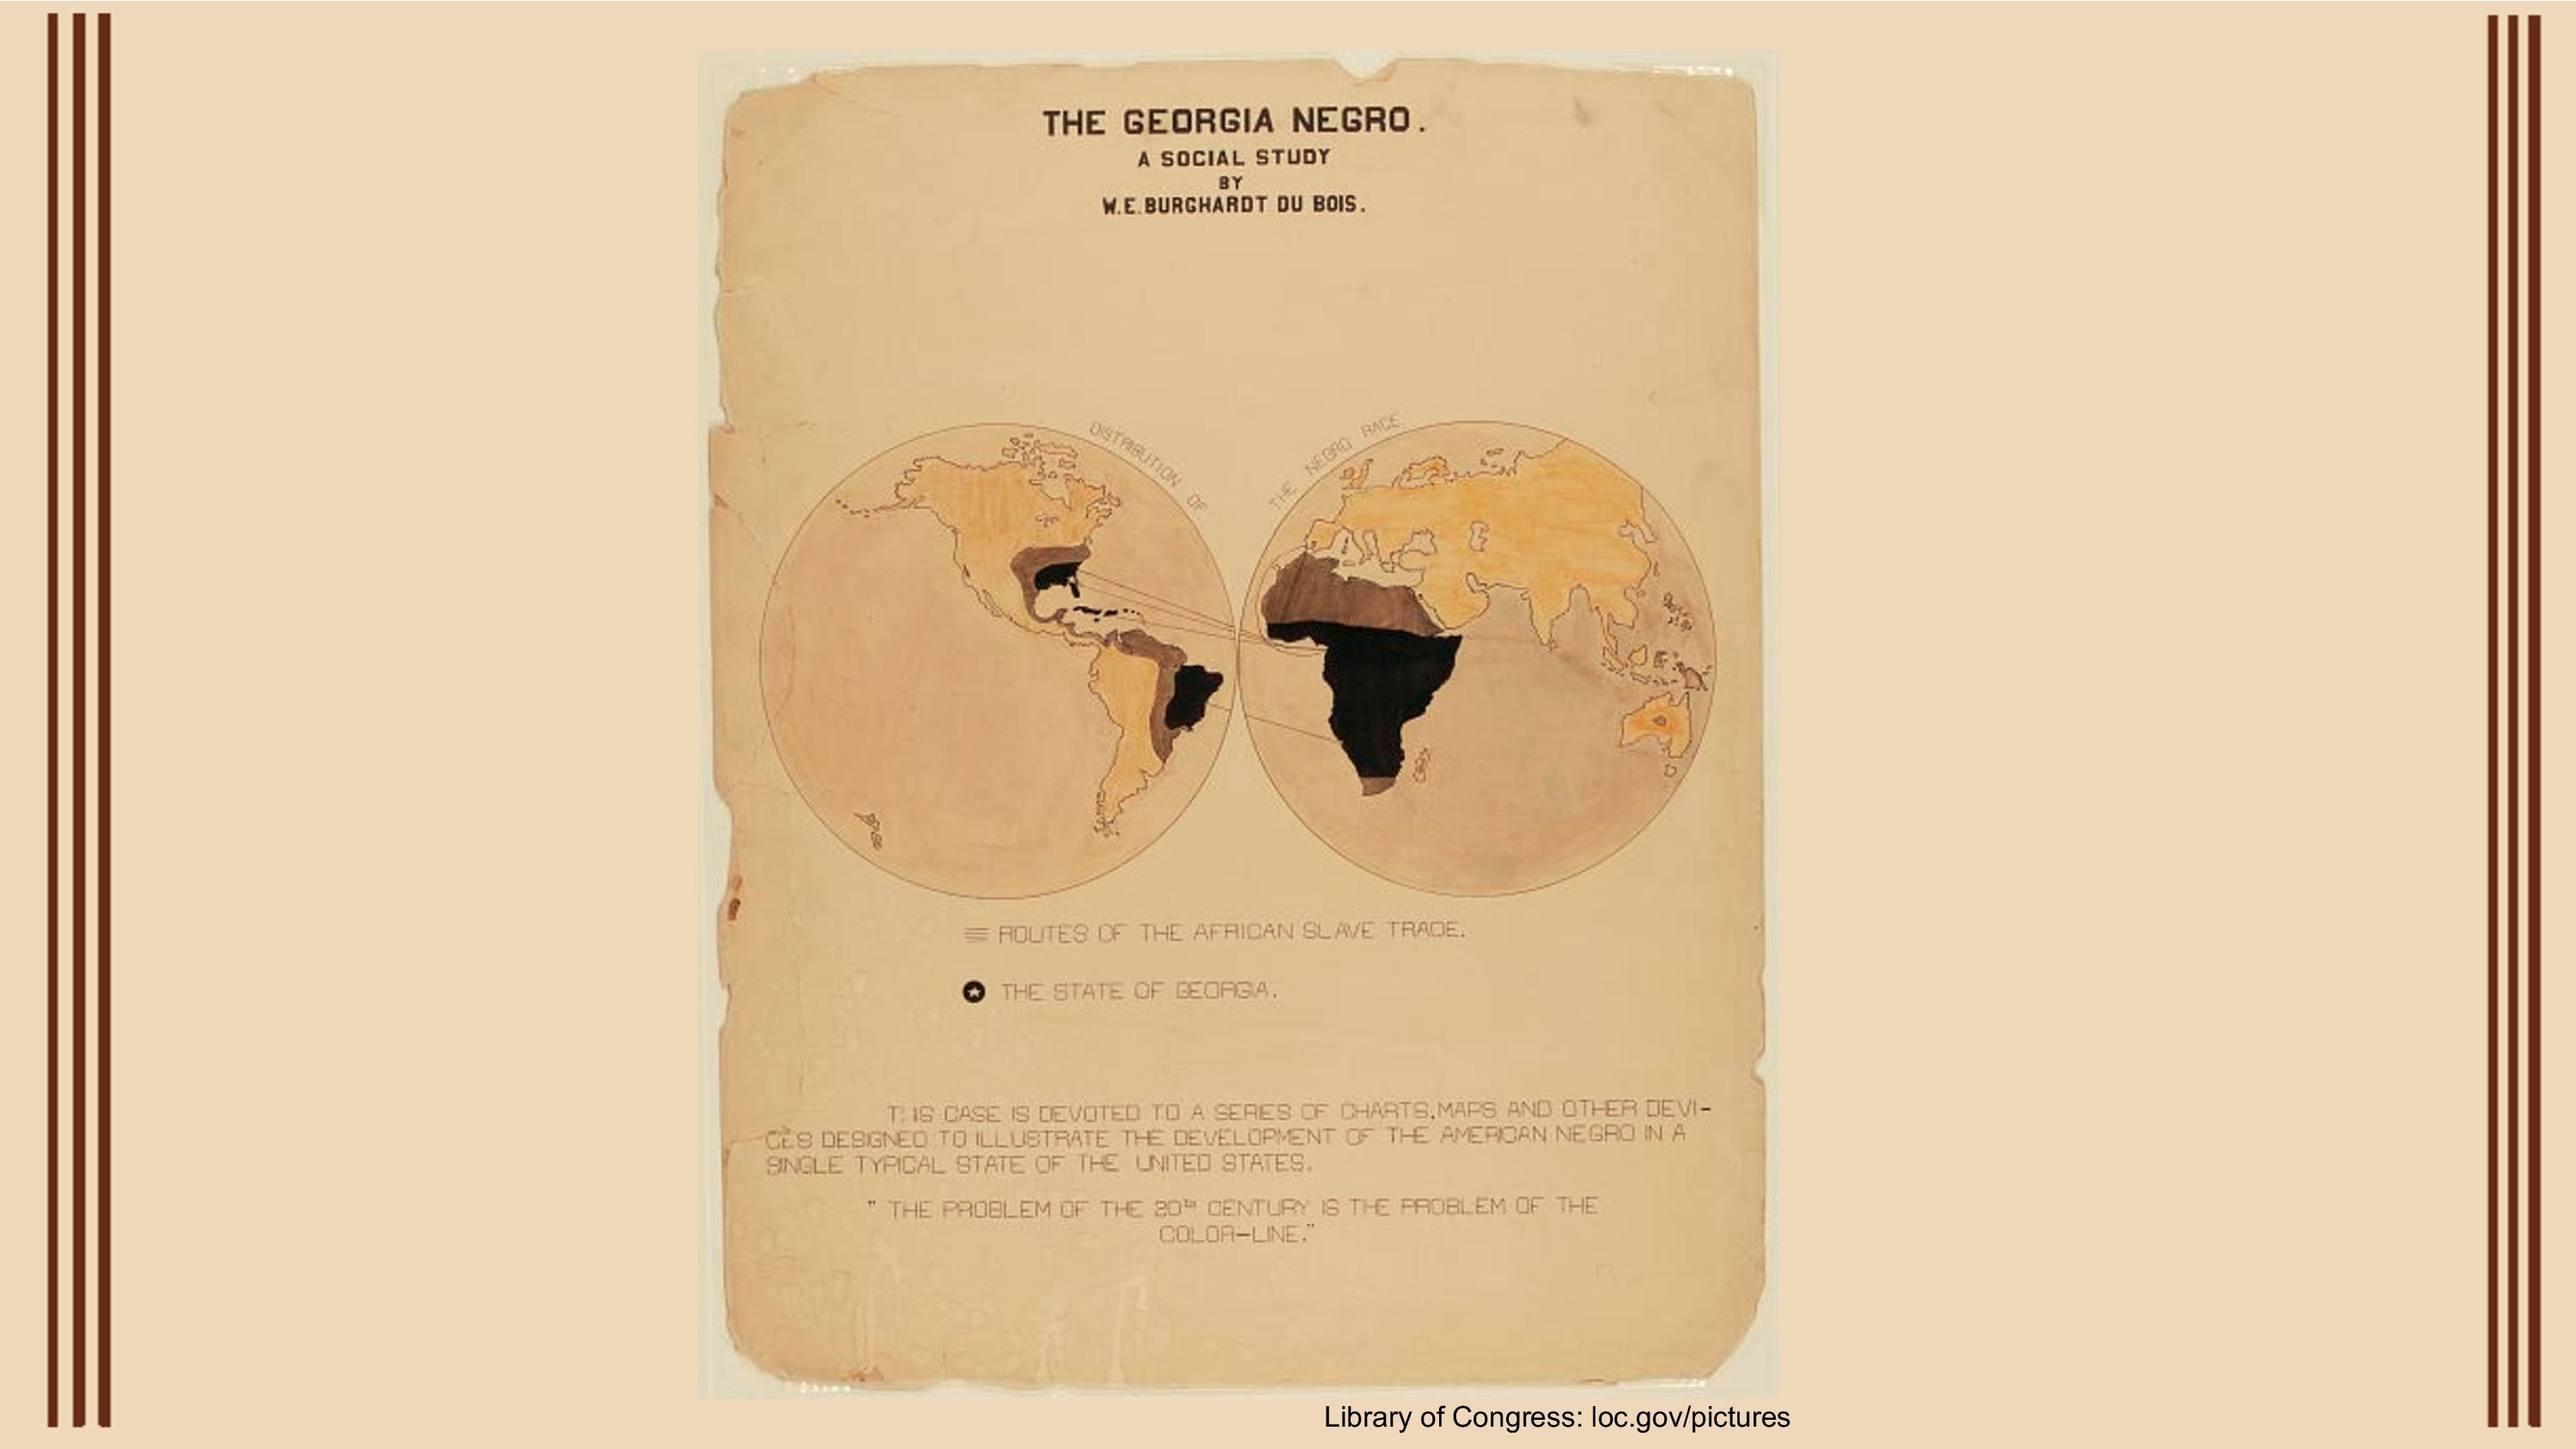 THE GEORGIA NEGRO.
A SOCIAL STUDY
BY
W.E.BURGHARDT DU BOIS.
DISTRIBUTION OF THE NEGRO RACE.
ROUTES OF THE AFRICAN SLAVE TRADE.
THE STATE OF GEORGIA.
THIS CASE IS DEVOTED TO A SERIES OF CHARTS, MAPS AND OTHER DEVI-
CES DESIGNED TO ILLUSTRATE THE DEVELOPMENT OF THE AMERICAN NEGRO IN A
SINGLE TYPICAL STATE OF THE UNITED STATES.
" THE PROBLEM OF THE 20TH CENTURY IS THE PROBLEM OF THE
COLOR-LINE."
Library of Congress: loc.gov/pictures